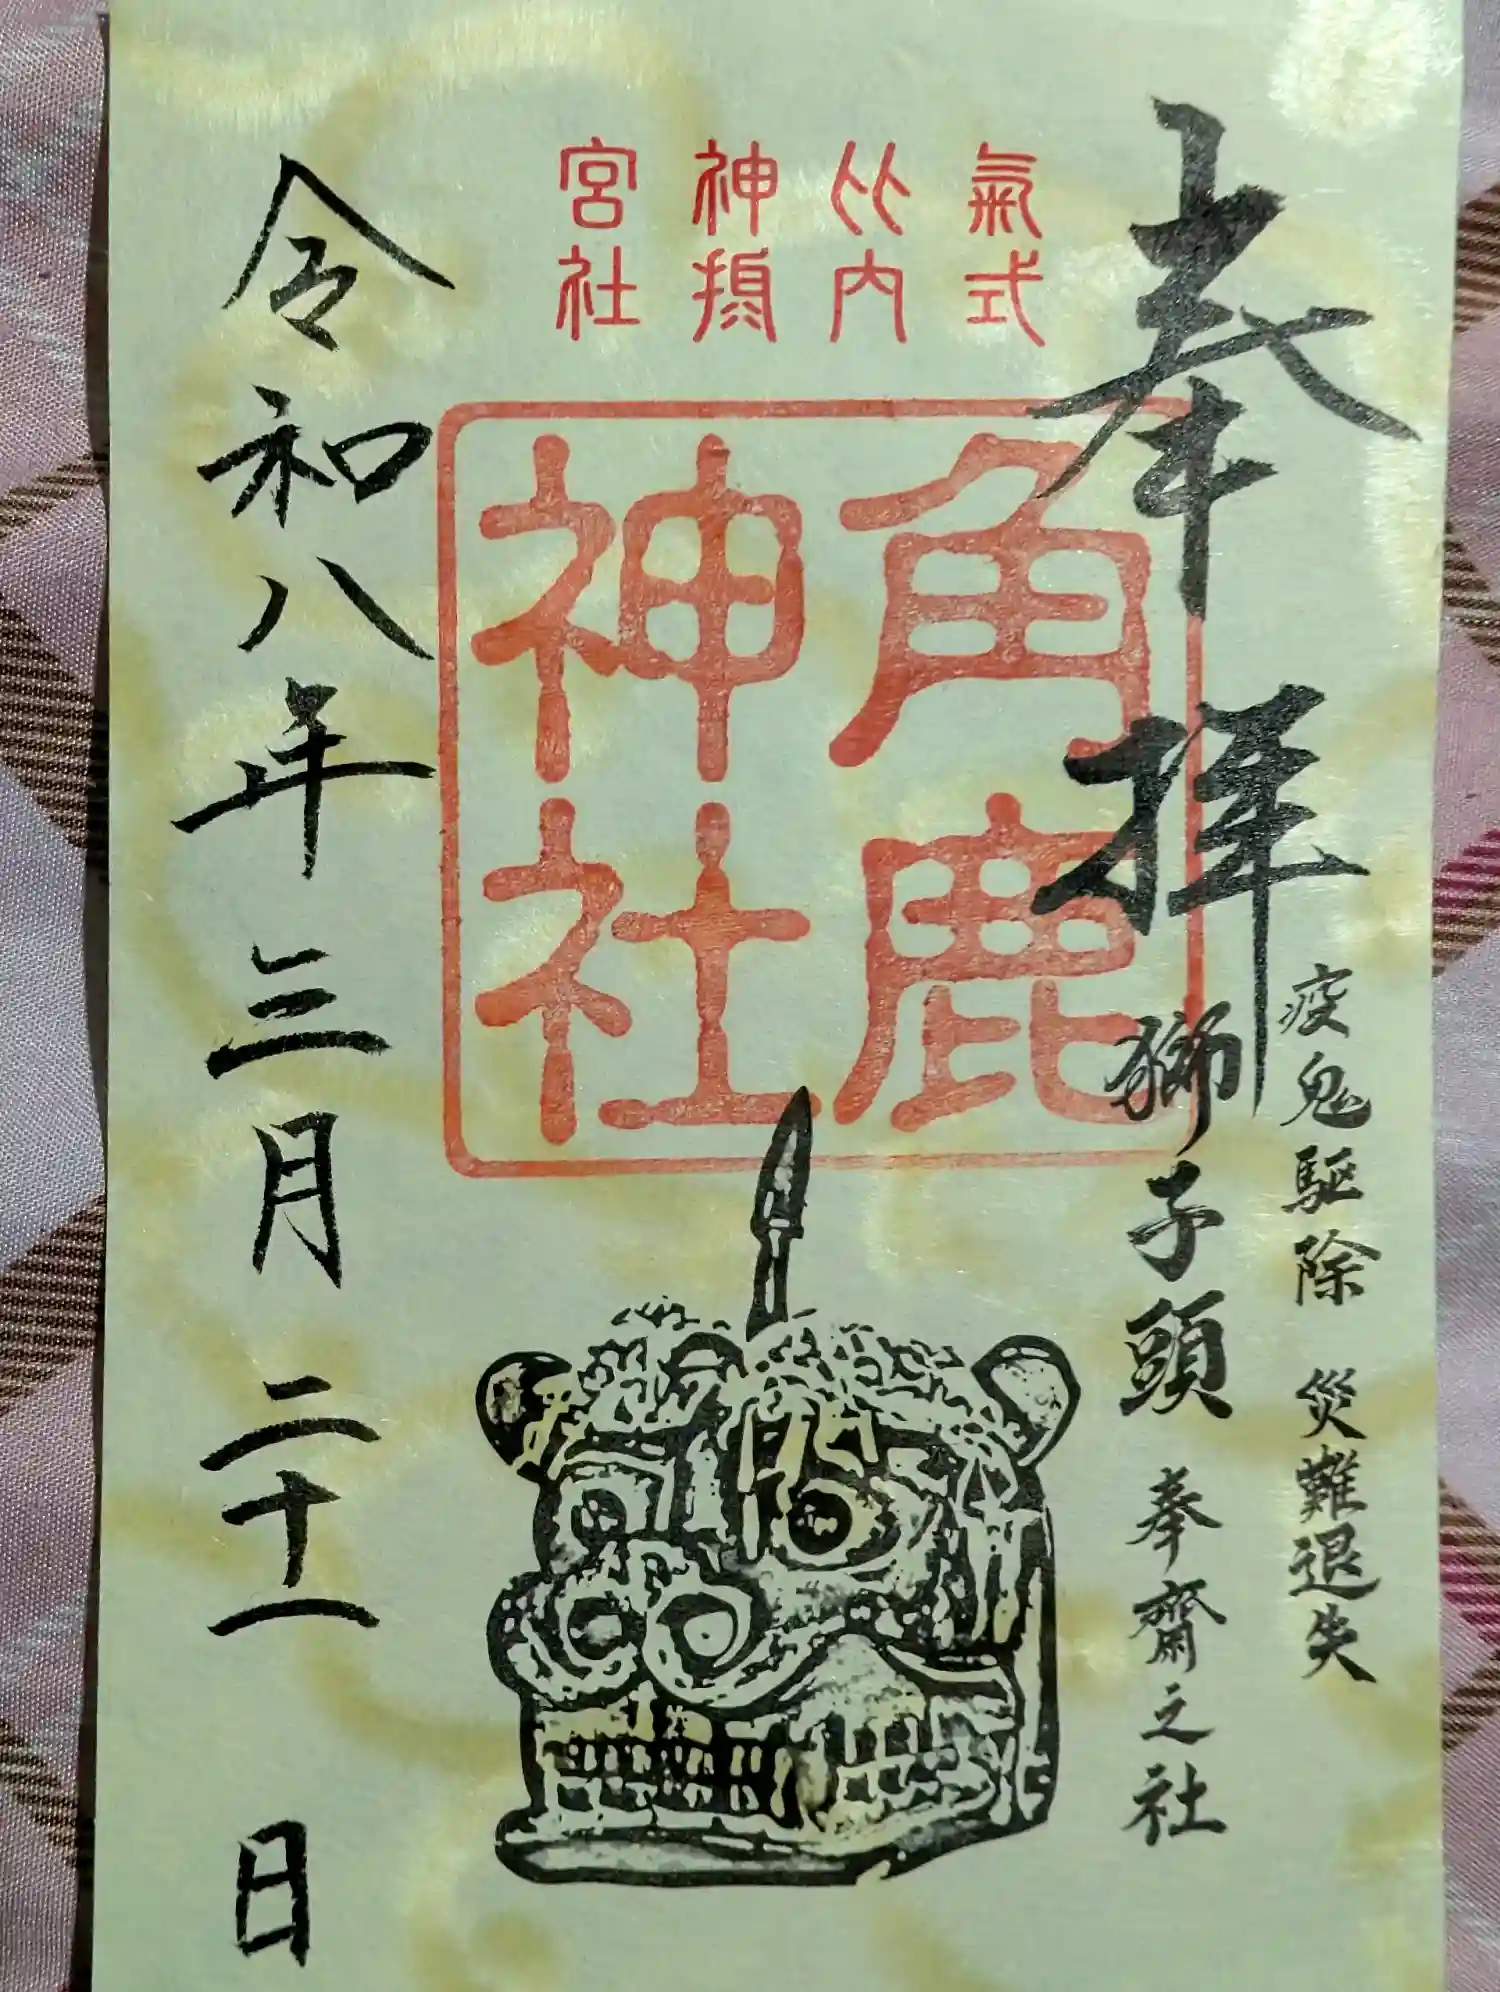 奉拝
疫鬼駆除 災難退失
獅子頭 奉齋之社
式内
氣比
神宮
社
角鹿
神社
令和八年三月二十一日